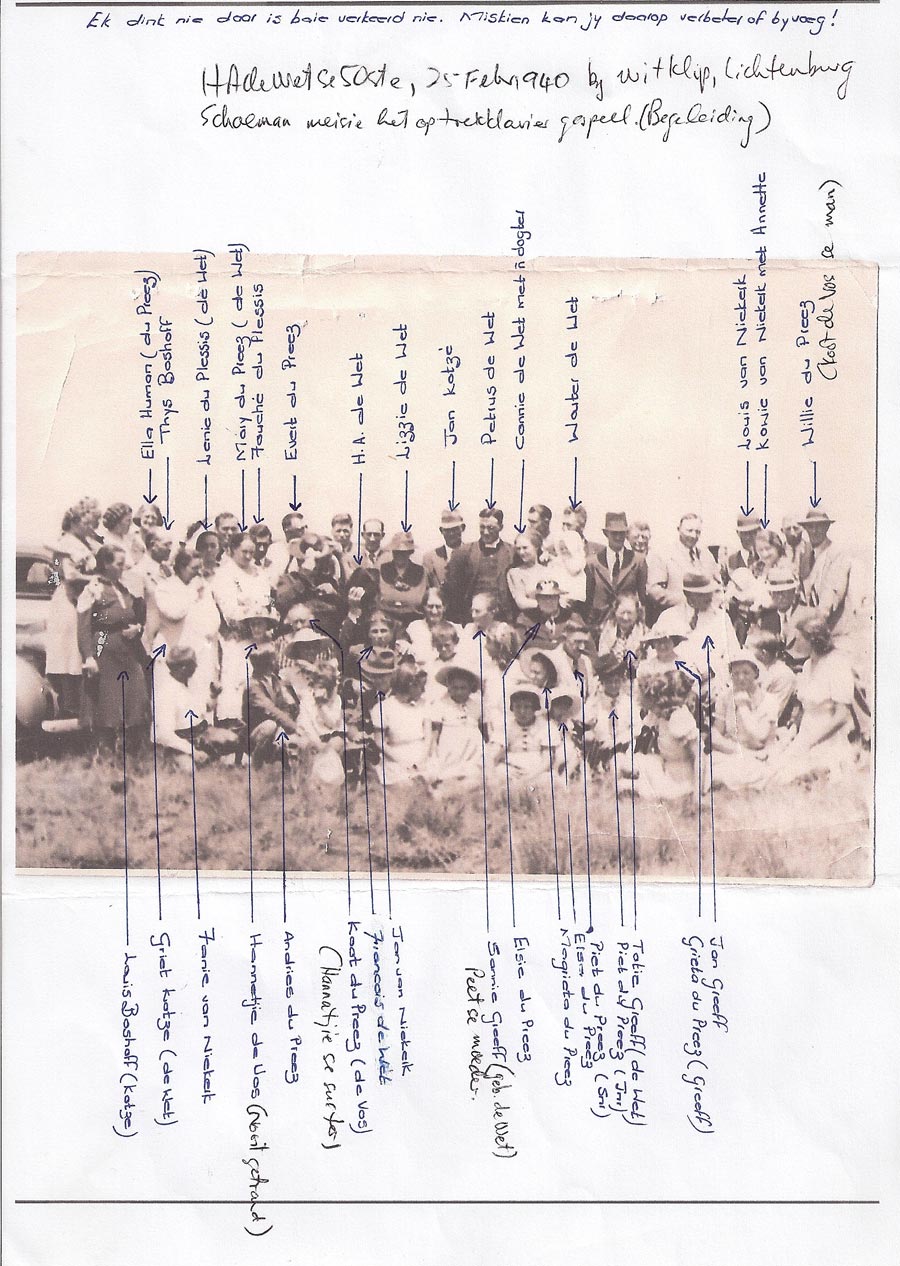 Ek dink nie daar is baie verkeerd nie. Miskien kan jy daarop verbeter of byvoeg!
HA de Wet se 50ste, 25 Feb 1940 by Witklip, Lichtenburg
Schoeman meisie het op trekklavier gespeel. (Begeleiding)
Ella Human (du Preez)
Thys Boshoff
Lenie du Plessis (de Wet)
Mary du Preez (de Wet)
Fouché du Plessis
Evert du Preez
H.A. de Wet
Lizzie de Wet
Jan Kotzé
Petrus de Wet
Connie de Wet met ń dogter
Wouter de Wet
Louis van Niekerk
Kowie van Niekerk met Annette
Willie du Preez
(Koot de Vos se man)
Louis Boshoff (Kotze)
Griet Kotze (de Wet)
Fanie van Niekerk
Hannetjie de Vos (Nooit getroud)
Andries du Preez
(Hannatjie se suster)
Koot du Preez (de Vos)
Francois de Wet
Jan van Niekerk
Sannie Greeff (geb. de Wet)
Peet se moeder.
Elsie du Preez
Magrieta du Preez
Elsa du Preez
Piet du Preez (Snr)
Piet du Preez (Jnr)
Totie Greeff (de Wet)
Grieta du Preez (Greeff)
Jan Greeff